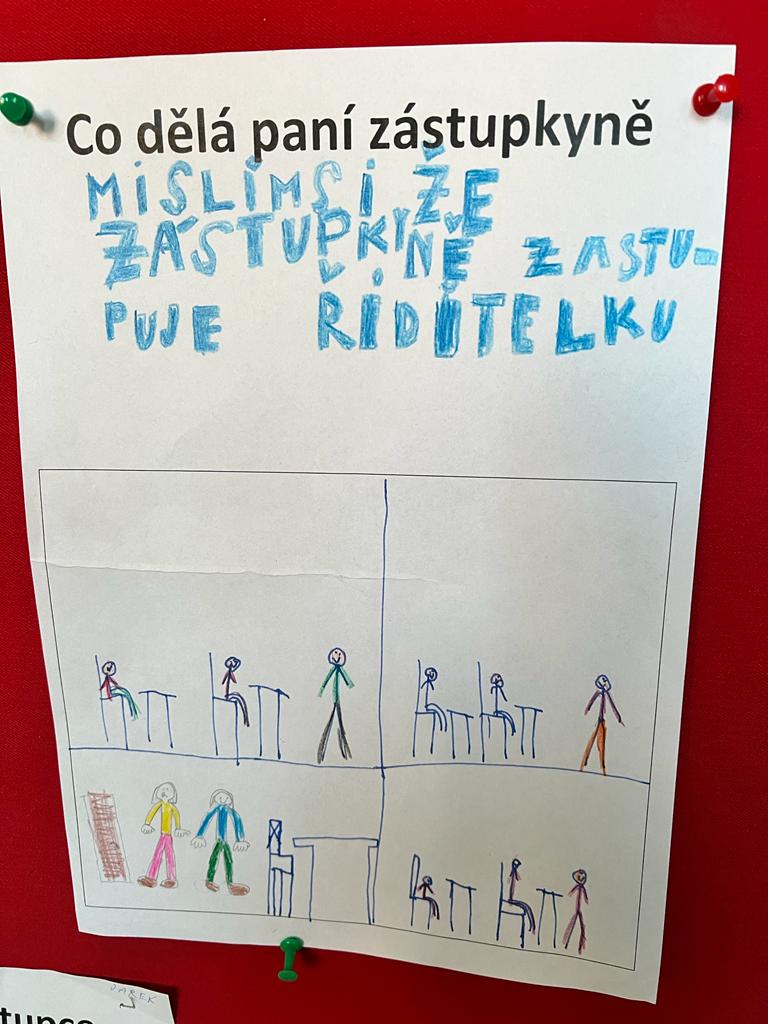 Co dělá paní zástupkyně
MiSLÍMSi ŽE
ZÁSTUPKYNĚ ZASTU-
PUJE ŘÍDÍTELKU
DAREK
tupce